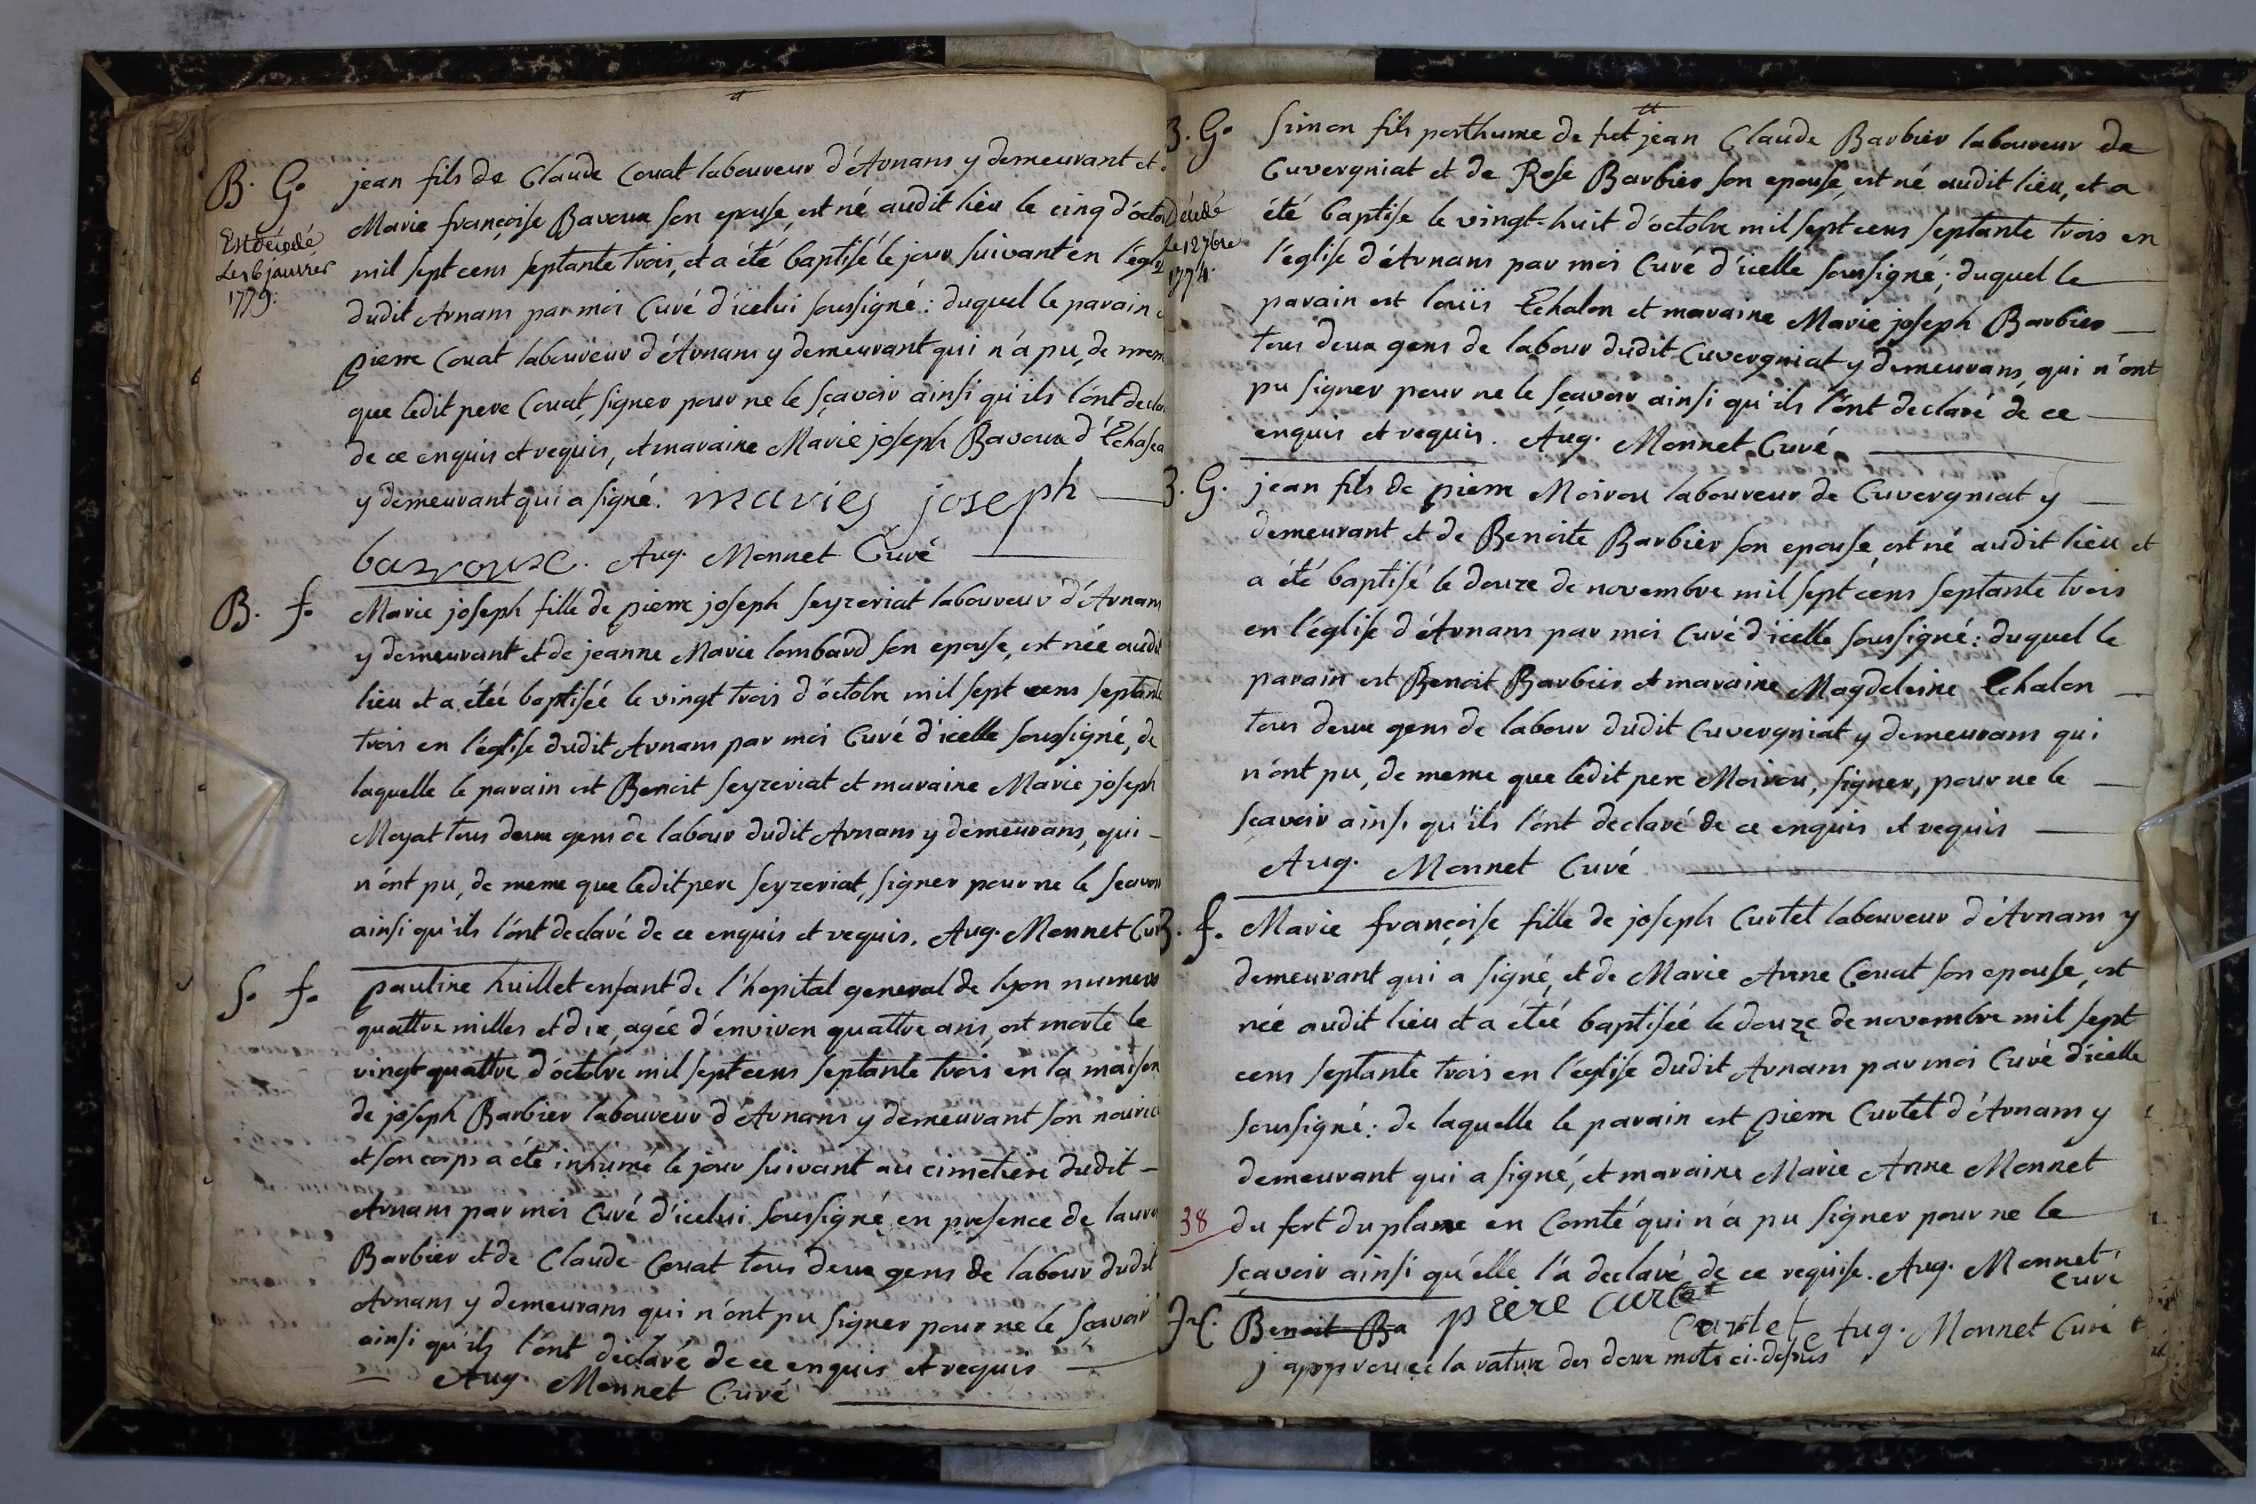 B. G. jean fils de Claude Couat laboureur d'Arnans y demeurant et
Marie françoise Bavoux son epouse, est né audit lieu le cinq d'octo
Est décédé
Le 16 janvier
1779.
mil sept cens septante trois, et a été baptisé le jour suivant en l'égli
dudit Arnans par moi Curé d'icelui soussigné: duquel le parain
pierre Couat laboureur d'Arnans y demeurant qui n'a pu, de mem
que ledit pere Couat, signer pour ne le sçavoir ainsi qu'ils l'ont decla
de ce enquis et requis, et maraine Marie joseph Bavoux d'Echasea
y demeurant qui a signé. maries joseph
bavouxe. Aug. Monnet Curé
B. f. Marie joseph fille de pierre joseph seyzeriat laboureur d'Arnans
y demeurant et de jeanne Marie lombard son epouse, est née audit
lieu et a étée baptisée le vingt trois d'octobre mil sept cens septante
trois en l'église dudit Arnans par moi Curé d'icelle soussigné, de
laquelle le parain est Benoit seyzeriat et maraine Marie joseph
Moyat tous deux gens de labour dudit Arnans y demeurans, qui
n'ont pu, de meme que ledit pere seyzeriat, signer pour ne le sçavoir
ainsi qu'ils l'ont declaré de ce enquis et requis. Aug. Monnet Cur
S. f. pauline huillet enfant de l'hopital general de lyon numero
quattre milles et dix, agée d'environ quattre ans, est morte le
vingt quattre d'octobre mil sept cens septante trois en la maison
de joseph Barbier laboureur d'Arnans y demeurant son nourici
et son corps a été inhumé le jour suivant au cimetiere dudit
Arnans par moi Curé d'icelui soussigné en presence de laure
Barbier et de Claude Couat tous deux gens de labour dudit
Arnans y demeurans qui n'ont pu signer pour ne le sçavoir
ainsi qu'ils l'ont declaré de ce enquis et requis
Aug. Monnet Curé
B. G. Simon fils posthume de fut jean Claude Barbier laboureur de
Cuvergniat et de Rose Barbier son epouse, est né audit lieu, et a
Décédé
le 12 7bre
1774.
été baptisé le vingt-huit d'octobre mil sept cens septante trois en
l'église d'Arnans par moi Curé d'icelle soussigné; duquel le
parain est louis Echalon et maraine Marie joseph Barbier
tous deux gens de labour dudit Cuvergniat y demeurans, qui n'ont
pu signer pour ne le sçavoir ainsi qu'ils l'ont declaré de ce
enquis et requis. Aug. Monnet Curé
B. G. jean fils de pierre Moirou laboureur de Cuvergniat y
demeurant et de Benoite Barbier son epouse, est né audit lieu et
a été baptisé le douze de novembre mil sept cens septante trois
en l'église d'Arnans par moi Curé d'icelle soussigné: duquel le
parain est Benoit Barbier et maraine Magdeleine Echalon
tous deux gens de labour dudit Cuvergniat y demeurans qui
n'ont pu, de meme que ledit pere Moirou, signer, pour ne le
sçavoir ainsi qu'ils l'ont declaré de ce enquis et requis
Aug. Monnet Curé
B. f. Marie françoise fille de joseph Curtet laboureur d'Arnans y
demeurant qui a signé, et de Marie Anne Couat son epouse, est
née audit lieu et a étée baptisée le douze de novembre mil sept
cens septante trois en l'église dudit Arnans par moi Curé d'icelle
soussigné: de laquelle le parain est pierre Curtet d'Arnans y
demeurant qui a signé, et maraine Marie Anne Monnet
38 du fort du plane en Comté qui n'a pu signer pour ne le
sçavoir ainsi qu'elle l'a declaré de ce requise. Aug. Monnet
Curé
Benoit Ba piere curtet
Curtet Aug. Monnet Curé
j'approuve la rature des deux mots ci-dessus